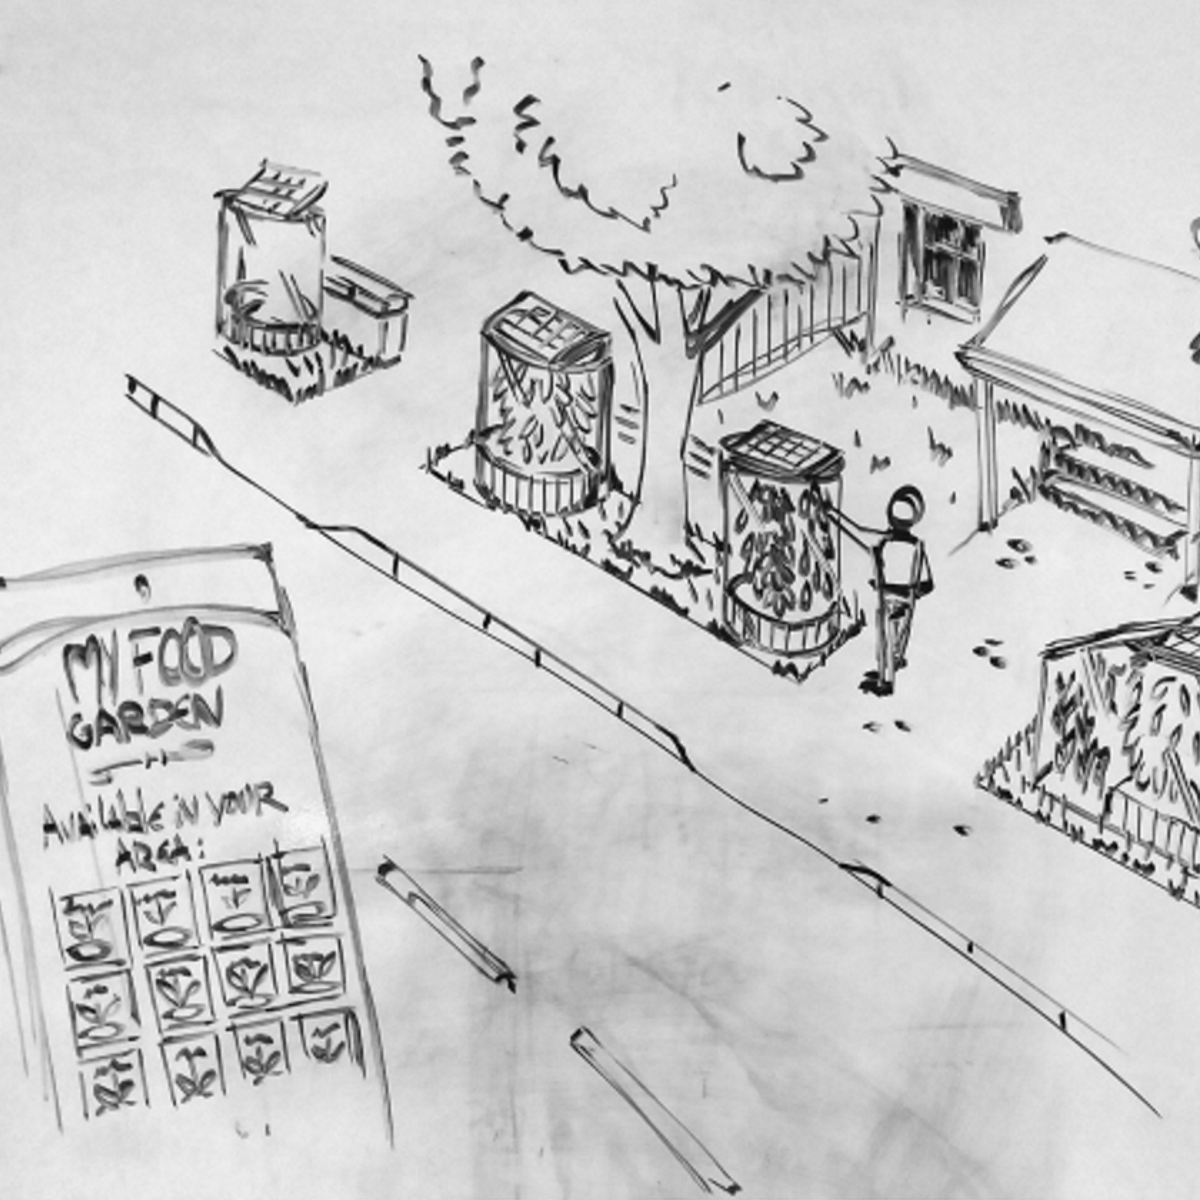 MY FOOD
GARDEN
Available in your
AREA: